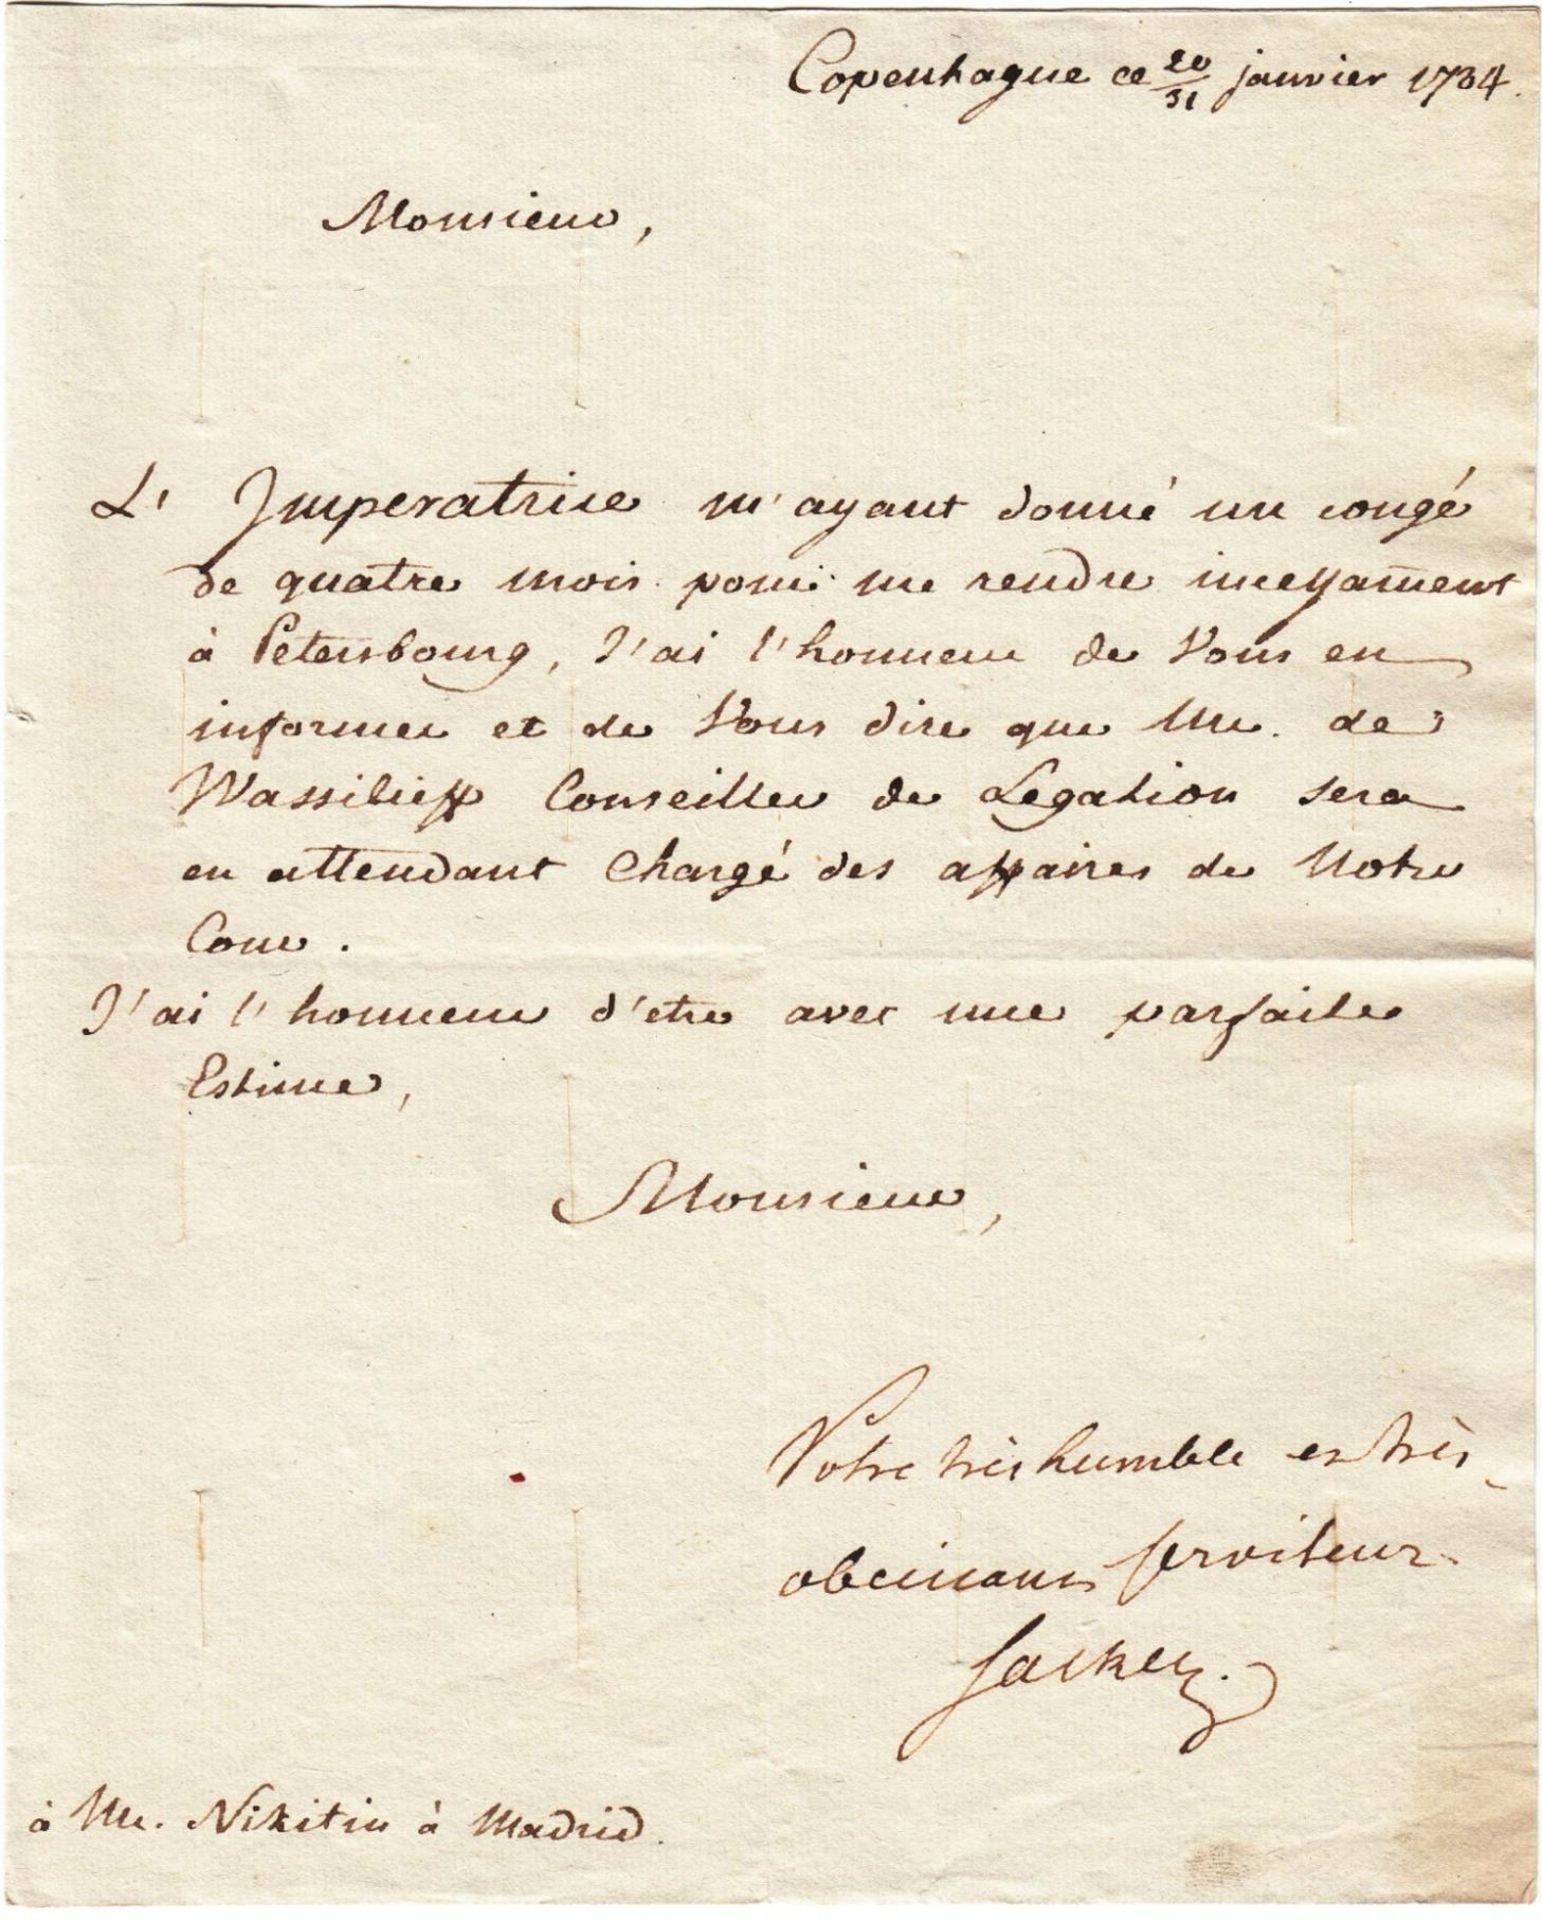 Copenhague ce 20/31 janvier 1784.
Monsieur,
L'Imperatrice m'ayant donné un congé
de quatre mois pour me rendre incessam̄ent
à Petersbourg, J'ai l'honneur de Vous en
informer et de Vous dire que Mr. de
Wassilieff Conseiller de Legation sera
en attendant Chargé des affaires de Notre
Cour.
J'ai l'honneur d'etre avec une parfaite
Estime,
Monsieur,
Votre très humble et très
obeissant serviteur
à Mr. Nikitin à Madrid.